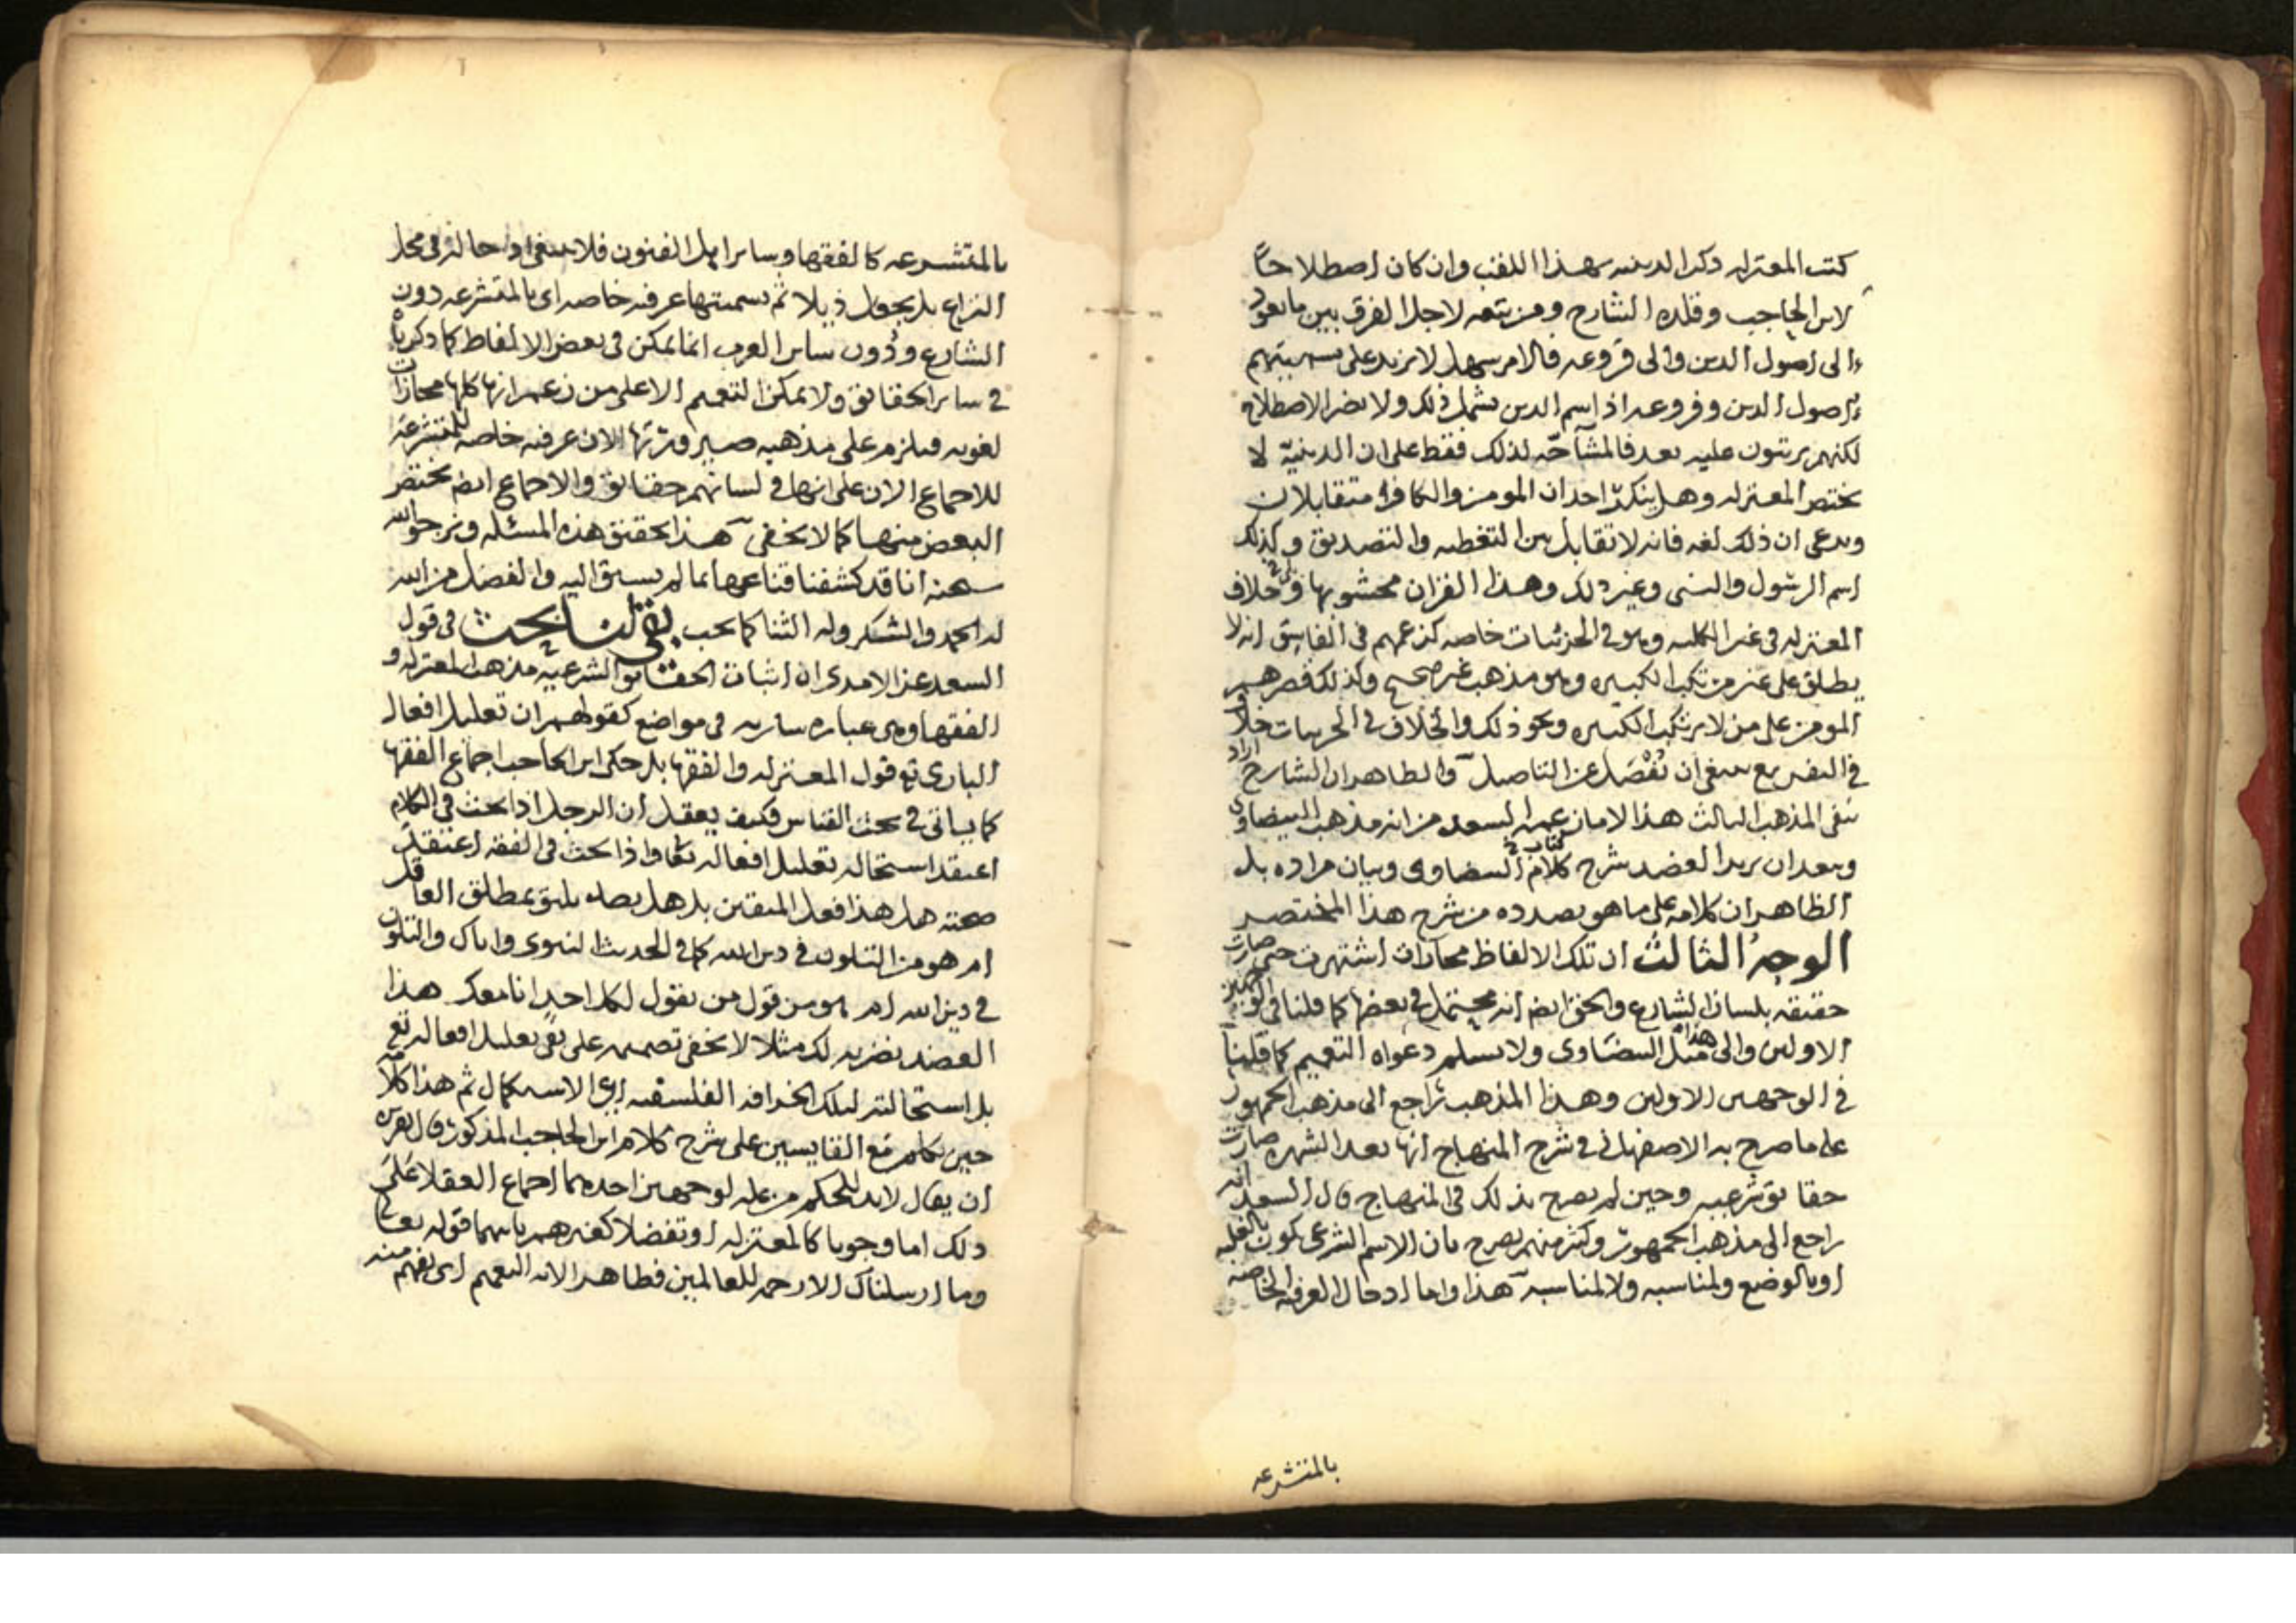 كتب المعتزله ذكر الدينيه بهذا اللقب وان كان اصطلاحاً
لابن الحاجب وقلده الشارح ومن تبعه لاجل الفرق بين ما يعود
الى اصول الدين والى فروعه فالامر سهل لا يزيد على تسميتهم
اصول الدين وفروعه اذ اسم الدين يشمل ذلك ولا يضر الاصطلاح
لكنهم يرتبون عليه بعد فالمشآحّه لذلك فقط على ان الدينيّة لا
تختص المعتزله وهل ينكر احد ان المومن والكافر متقابلان
ويدعى ان ذلك لغه فانه لا تقابل بين التغطيه والتصديق وكذلك
اسم الرسول والنبي وغير ذلك وهذا القران محشو بها وخلاف
المعتزله في غير الكليه وهو في الجزئيات خاصه كزعمهم في الفاسق انه لا
يطلق على غير مرتكب الكبيره وهو مذهب غير صحيح وكذلك قصرهم
المومن على من لا يرتكب الكبيره ونحو ذلك والخلاف في الجزييات خلاف
في التفريع ينبغي ان يُفْصَل عن التاصيل والظاهر ان الشارح اراد
بنفي المذهب الثالث هذا لا ما زعمه السعد من انه مذهب البيضاوي
وبعد ان يريد العضد شرح كلام كتاب البيضاوي وبيان مراده بل
الظاهر ان كلامه على ما هو بصدده من شرح هذا المختصر
الوجه الثالث ان تلك الالفاظ مجازات اشتهرت حتى صارت
حقيقه بلسان الشارع والحق ايضا انه محتمل في بعضها كما قلنا في الوجهين
الاولين والى هذا مَيْل البيضاوي ولا يسلم دعواه التعميم كما قلنا
في الوجهين الاولين وهذا المذهب راجع الى مذهب الجمهور
على ما صرح به الاصفهاني في شرح المنهاج انها بعد الشهره صارت
حقايق شرعيه وحين لم يصرح بذلك في المنهاج قال السعد انه
راجع الى مذهب الجمهور وكثير منهم يصرح بان الاسم الشرعي يكون بالغلبه
او بالوضع ولمناسبه ولا لمناسبه هذا واما ادخال العرفيه الخاصه
بالمتشرعه
بالمتشرعه كالفقها وساير اهل الفنون فلا ينبغي ادخاله في محل
النزاع بل يجعل ذيلا ثم تسميتها عرفيه خاصه اي بالمتشرعه دون
الشارع ودُون ساير العرب انما يمكن في بعض الالفاظ كما ذكرناه
في ساير الحقايق ولا يمكن التعميم الا على من زعم انها كلها مجازات
لغويه فيلزم على مذهبه صيرورتها الان عرفيه خاصه للمتشرعه
للاجماع الان على انها في لسانهم حقايق والاجماع ايضا يختص
البعض منها كما لا يخفى هذا تحقيق هذه المسئله ونرجو الله
سبحنه انا قد كشفنا قناعها بما لم يسبق اليه والفضل من الله
له الحمد والشكر وله الثنا كما يحب بقي لنا بحث في قول
السعد عن الامدي ان اثبات الحقايق الشرعيه مذهب المعتزله و
الفقها وهي عباره ساريه في مواضع كقولهم ان تعليل افعال
الباري تع قول المعتزله والفقها بل حكى ابن الحاجب اجماع الفقها
كما ياتي في بحث القياس فكيف يعقل ان الرجل اذا بحث في الكلام
اعتقد استحاله تعليل افعاله تعا واذا بحث في الفقه اعتقد
صحته هل هذا فعل المتقين بل هل يليق بمطلق العاقل
ام هو من التلون في دين الله كما في الحديث النبوي واياك والتلون
في دين الله ام هو من قول من يقول لكل احد انا معك هذا
العضد نضربه لك مثلا لا يخفى تصميمه على نفي تعليل افعاله تع
بل استحالته لتلك الخرافه الفلسفيه اي الاستكمال ثم هذا كلامه
حين تكلم مع القايسين على شرح كلام ابن الحاجب المذكور قال تقريره
ان يقال لابد للحكم من عله لوجهين احدهما اجماع العقلا على
ذلك اما وجوبا كالمعتزله او تفضلا كغيرهم ثانيهما قوله تعالى
وما ارسلناك الا رحمه للعالمين فظاهر الايه التعميم اي يفهم منه